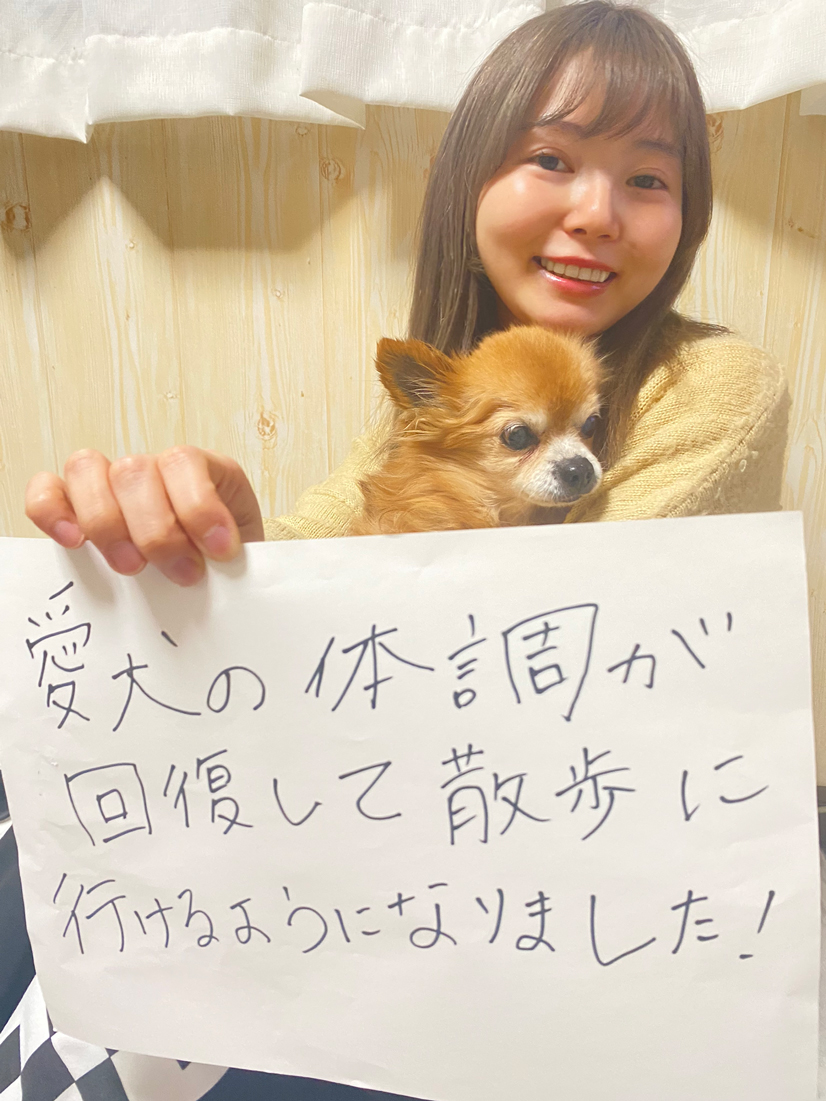 愛犬の体調が
回復して散歩に
行けるようになりました!